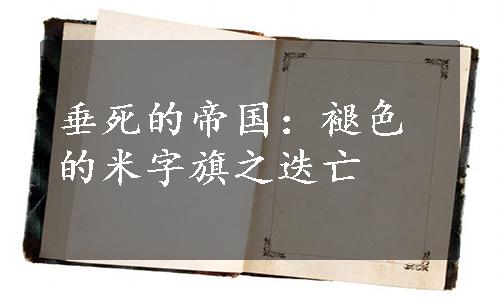 垂死的帝国：褪色
的米字旗之迭亡